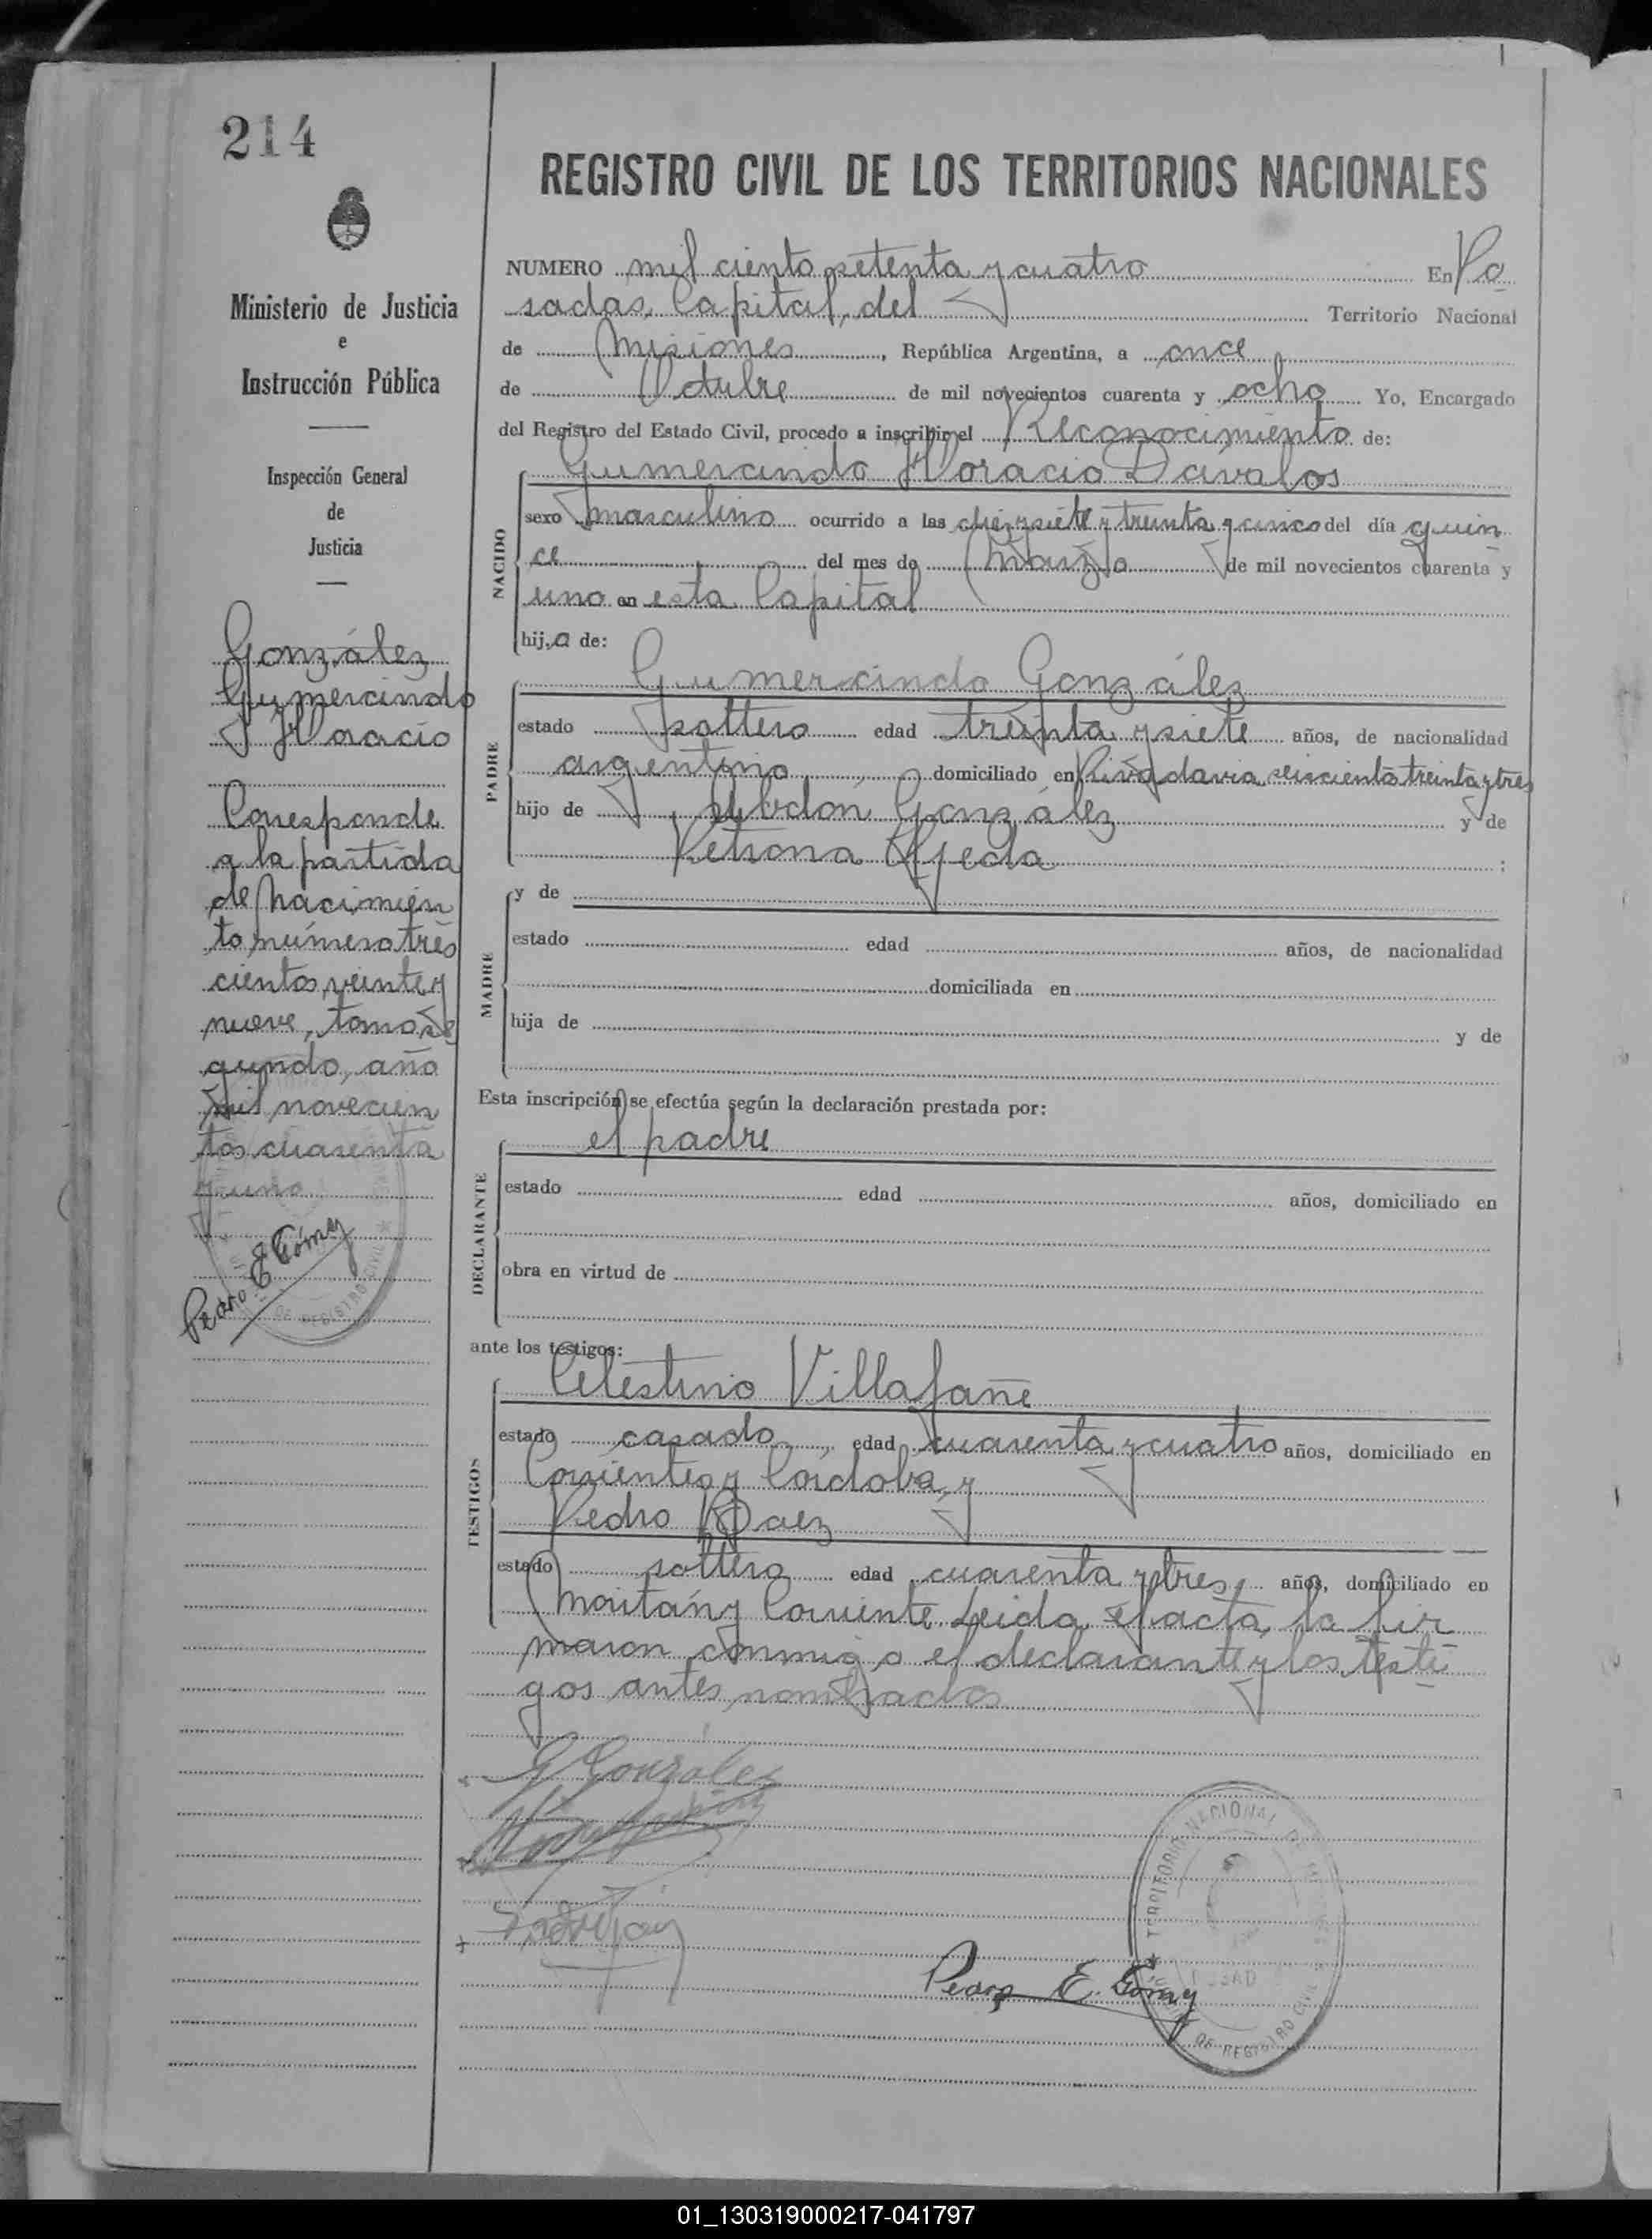 214
Ministerio de Justicia
e
Instrucción Pública
Inspección General
de
Justicia
González
Gumercindo
Horacio
Corresponde
a la partida
de nacimien
to número tres
cientos veinte y
nueve, tomo se
gundo, año
mil novecien
tos cuarenta
y uno
Pedro E Gómez
REGISTRO CIVIL DE LOS TERRITORIOS NACIONALES
NUMERO mil ciento setenta y cuatro En Po
sadas, Capital, del Territorio Nacional
de Misiones, República Argentina, a once
de Octubre de mil novecientos cuarenta y ocho Yo, Encargado
del Registro del Estado Civil, procedo a inscribir el Reconocimiento de:
Gumercindo Horacio Dávalos
NACIDO
sexo masculino ocurrido a las diez y siete y treinta y cinco del día quin
ce del mes de Marzo de mil novecientos cuarenta y
uno en esta Capital
hij a de:
Gumercindo González
PADRE
estado soltero edad treinta y siete años, de nacionalidad
argentino, domiciliado en Rivadavia seiscientos treinta y tres
hijo de González y de
Petrona Ojeda ;
MADRE
y de
estado edad años, de nacionalidad
domiciliada en
hija de y de
Esta inscripción se efectúa según la declaración prestada por:
el padre
DECLARANTE
estado edad años, domiciliado en
obra en virtud de
ante los testigos:
Celestino Villafañe
TESTIGOS
estado casado, edad cuarenta y cuatro años, domiciliado en
Corrientes y Córdoba, y
Pedro Paez
estado soltero edad cuarenta y tres, años, domiciliado en
y Corriente Leida el acta, la fir
maron conmigo el declarante y los testi
gos antes nombrados
G González
Pedro E. Gómez
TERRITORIO NACIONAL DE
DE REGISTRO CIVIL
01_130319000217-041797